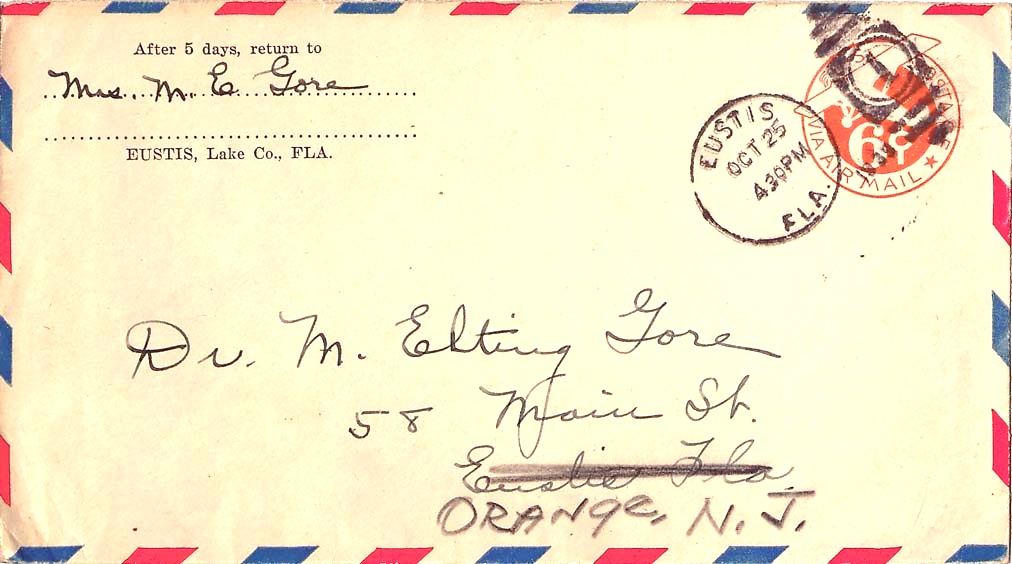 After 5 days, return to
Mrs. M. E Gore
EUSTIS, Lake Co., FLA.
EUSTIS
OCT 25
4 30 PM
FLA.
6¢
VIA AIR MAIL
Dr. M. Elting Gore
58 Main St.
Eustis Fla.
ORANGE, N. J.